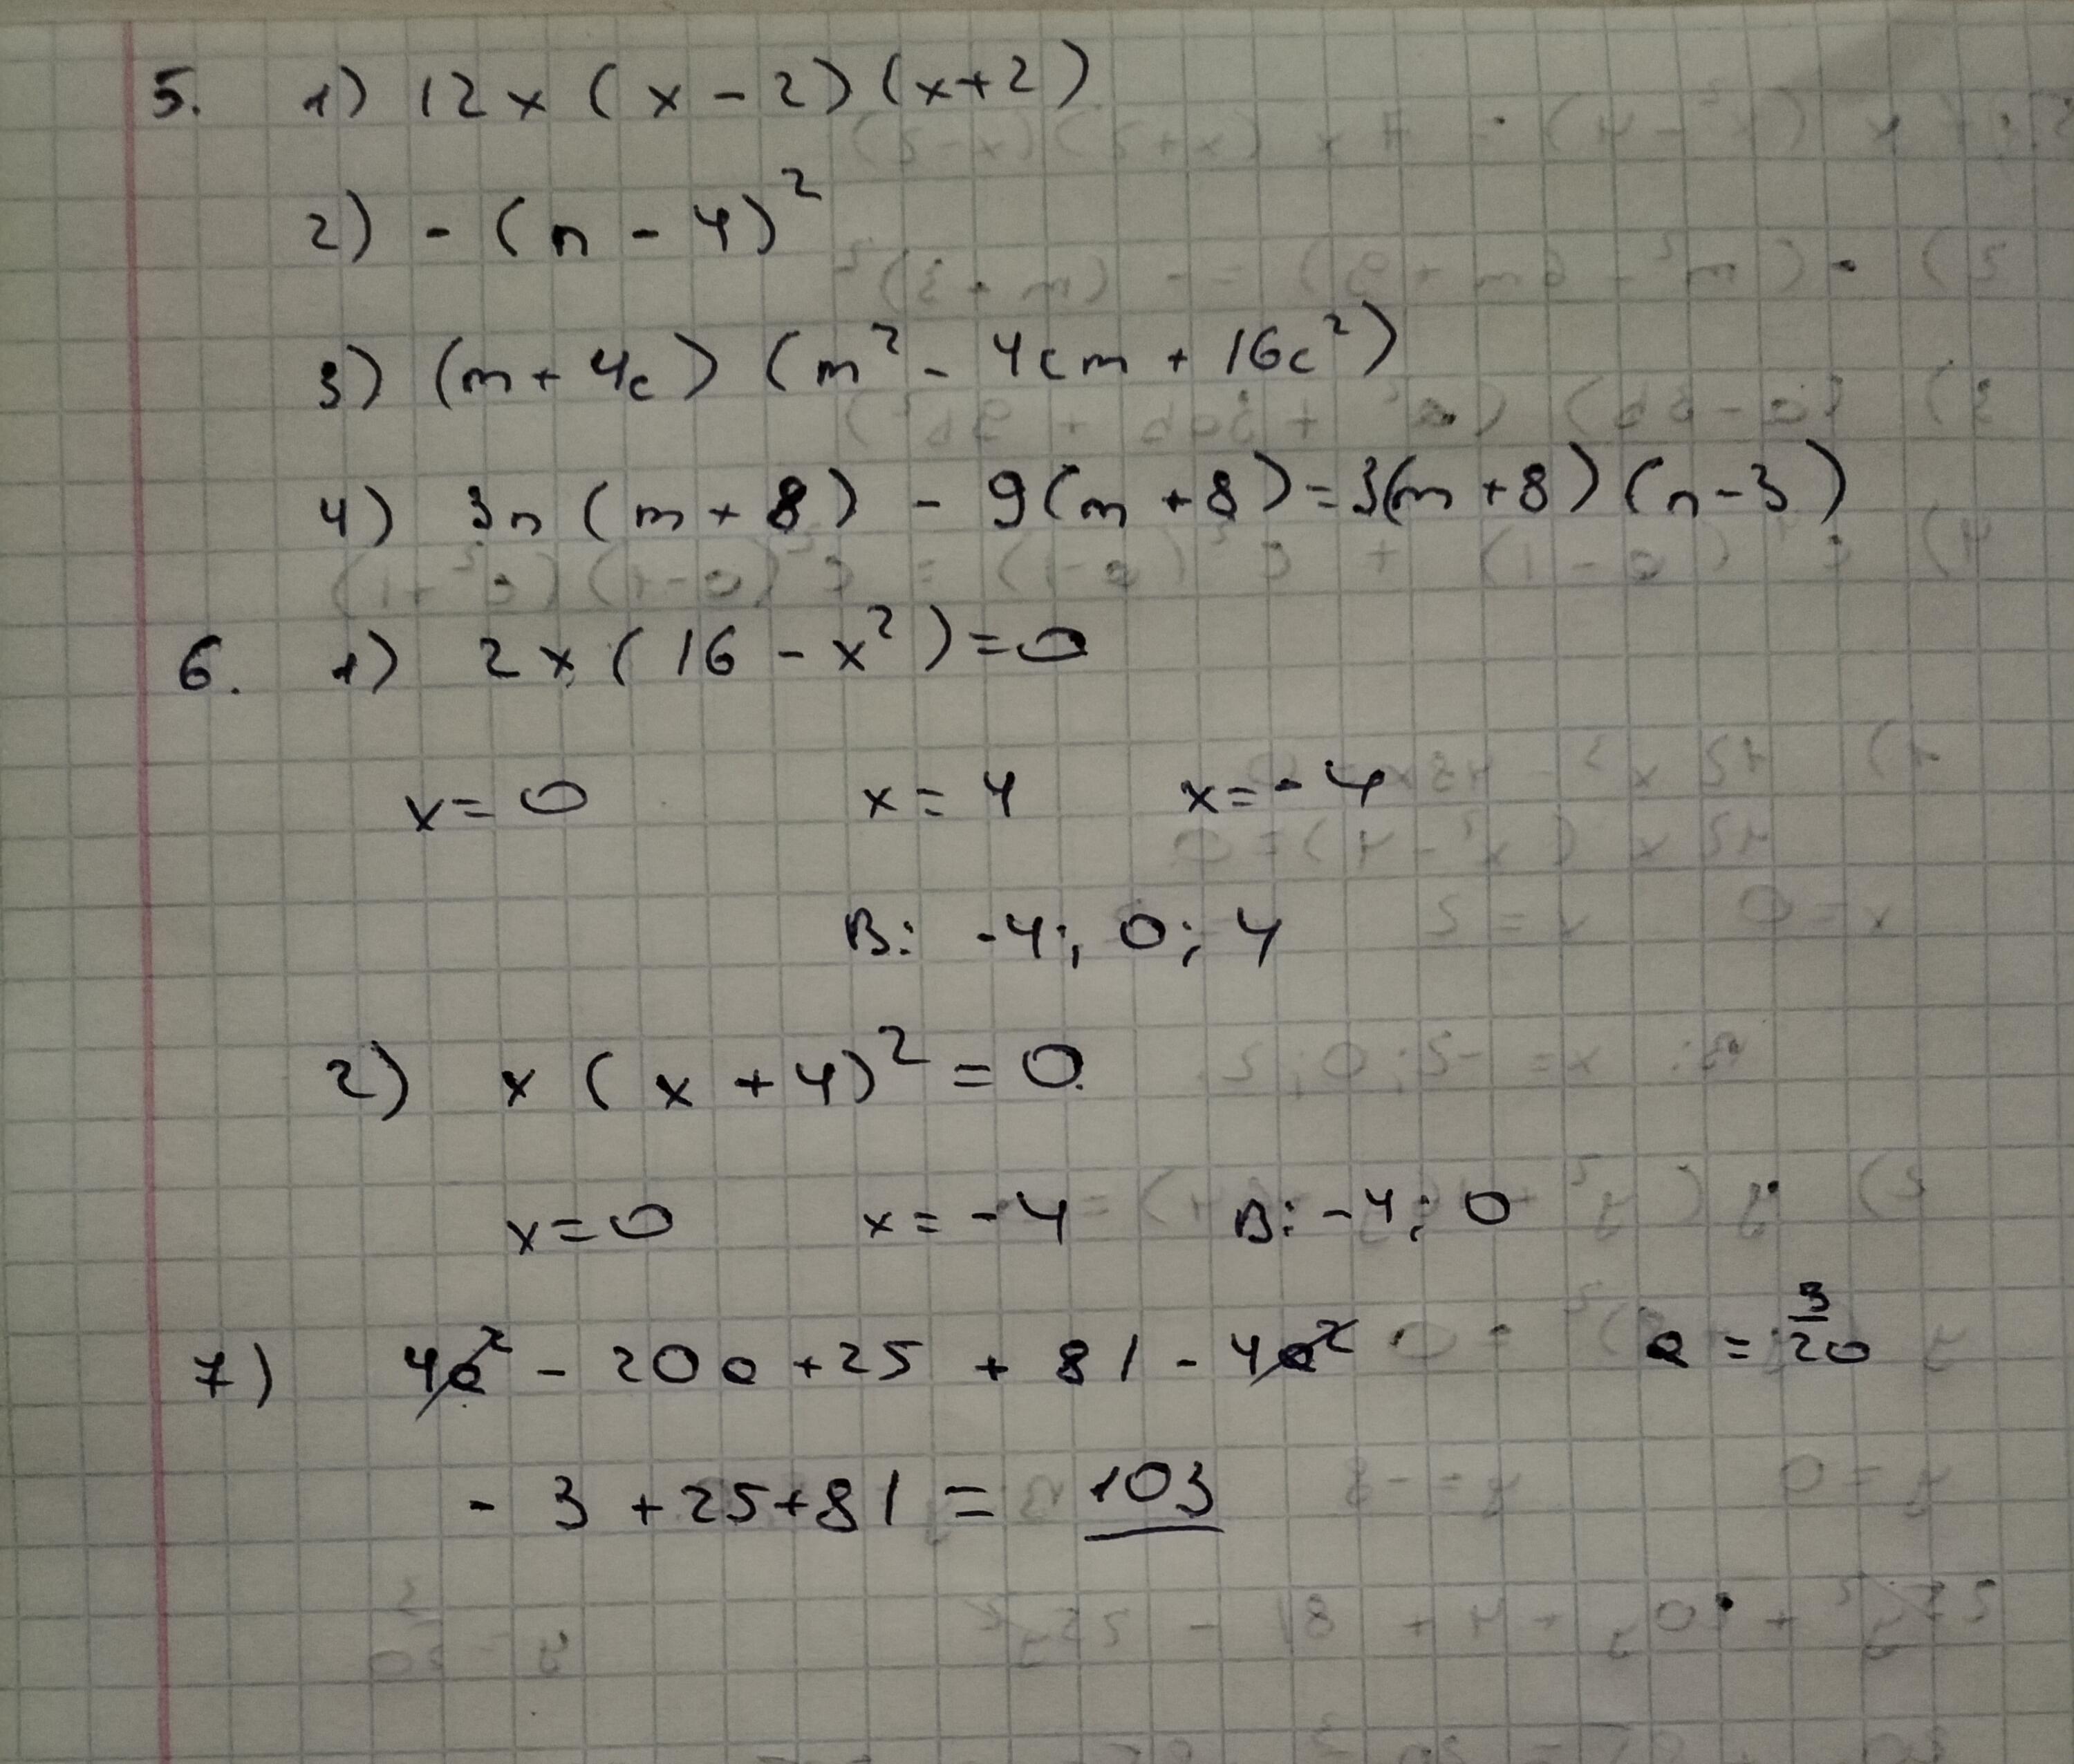 5. 1) 12x (x - 2) (x+2)
2) - (n - 4)²
3) (m + 4c) (m² - 4cm + 16c²)
4) 3n (m + 8) - 9(m + 8) = 3(m + 8) (n - 3)
6. 1) 2x (16 - x²) = 0
x = 0 x = 4 x = -4
В: -4; 0; 4
2) x (x + 4)² = 0
x = 0 x = -4 В: -4; 0
7) 4a² - 20a + 25 + 81 - 4a² a = 3/20
- 3 + 25 + 81 = 103